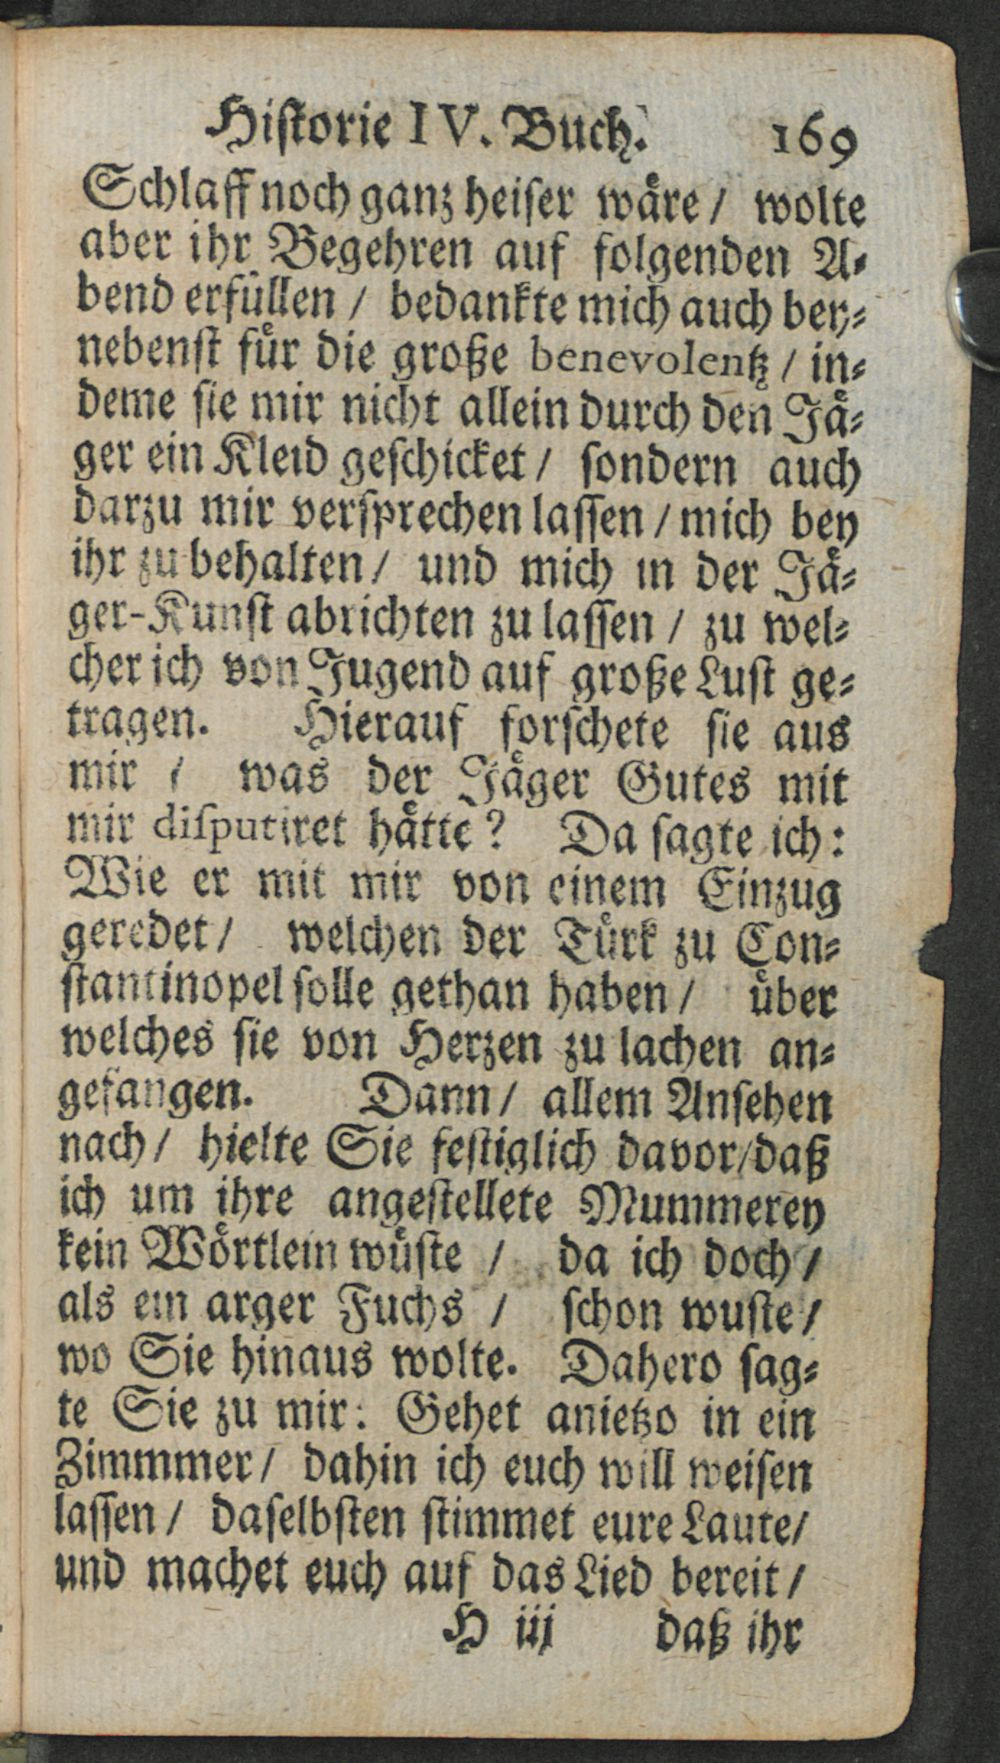 Historie IV. Buch. 169
Schlaff noch ganz heiser wäre / wolte
aber ihr Begehren auf folgenden A-
bend erfüllen / bedankte mich auch bey-
nebenst für die große benevolentz / in-
deme sie mir nicht allein durch den Jä-
ger ein Kleid geschicket / sondern auch
darzu mir versprechen lassen / mich bey
ihr zu behalten / und mich in der Jä-
ger-Kunst abrichten zu lassen / zu wel-
cher ich von Jugend auf große Lust ge-
tragen. Hierauf forschete sie aus
mir / was der Jäger Gutes mit
mir disputiret hätte? Da sagte ich:
Wie er mit mir von einem Einzug
geredet / welchen der Türk zu Con-
stantinopel solle gethan haben / über
welches sie von Herzen zu lachen an-
gefangen. Dann / allem Ansehen
nach / hielte Sie festiglich davor / daß
ich um ihre angestellete Mummerey
kein Wörtlein wüste / da ich doch /
als ein arger Fuchs / schon wuste /
wo Sie hinaus wolte. Dahero sag-
te Sie zu mir: Gehet anietzo in ein
Zimmmer / dahin ich euch will weisen
lassen / daselbsten stimmet eure Laute /
und machet euch auf das Lied bereit /
H iij daß ihr